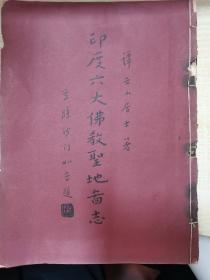 譚云山居士著
印度六大佛教聖地圖志